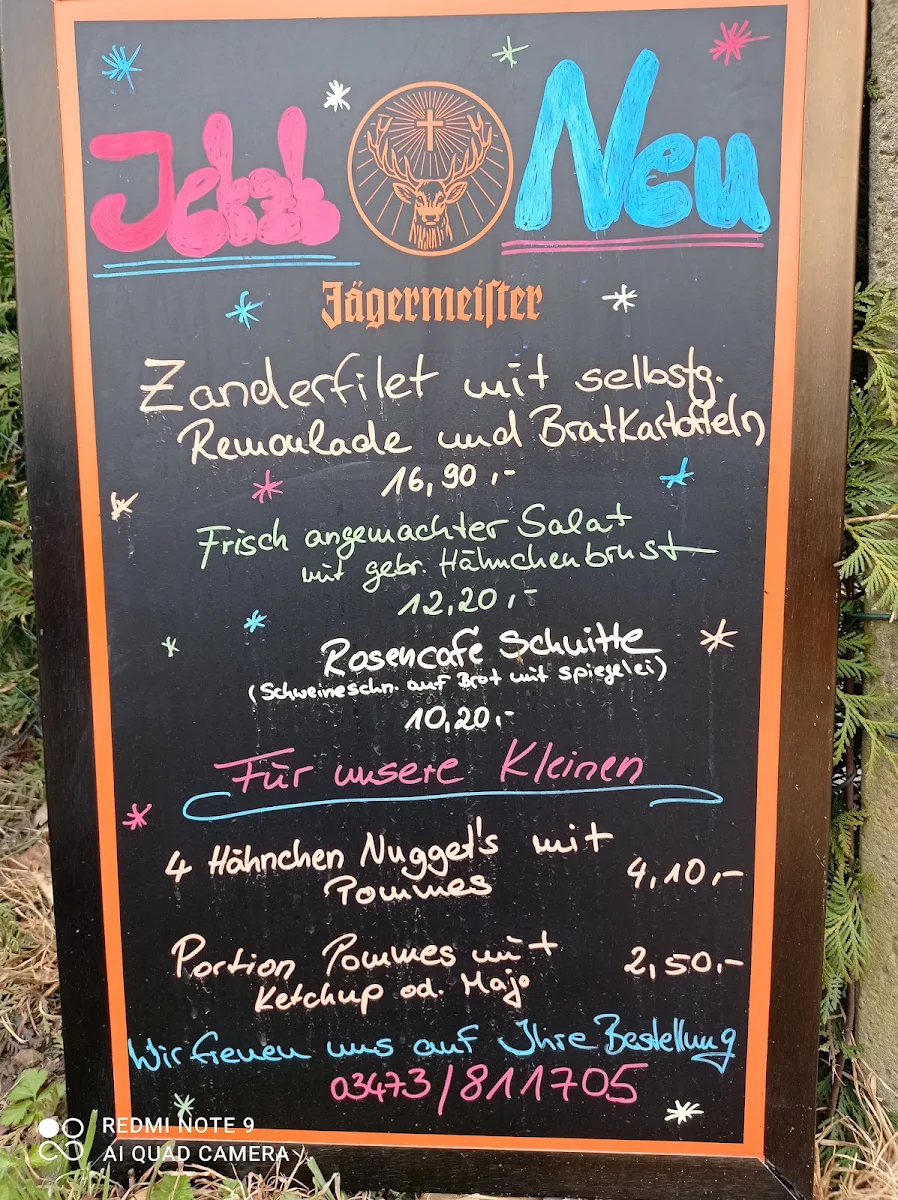 Jetzt Neu
Jägermeister
Zanderfilet mit selbstg.
Remoulade und Bratkartoffeln
16,90,-
Frisch angemachter Salat
mit gebr. Hähnchenbrust
12,20,-
Rosencafé Schnitte
(Schweineschn. auf Brot mit spiegelei)
10,20,-
Für unsere Kleinen
4 Hähnchen Nugget's mit
Pommes 4,10,-
Portion Pommes mit 2,50,-
Ketchup od. Majo
Wir freuen uns auf Ihre Bestellung
03473/811705
REDMI NOTE 9
AI QUAD CAMERA